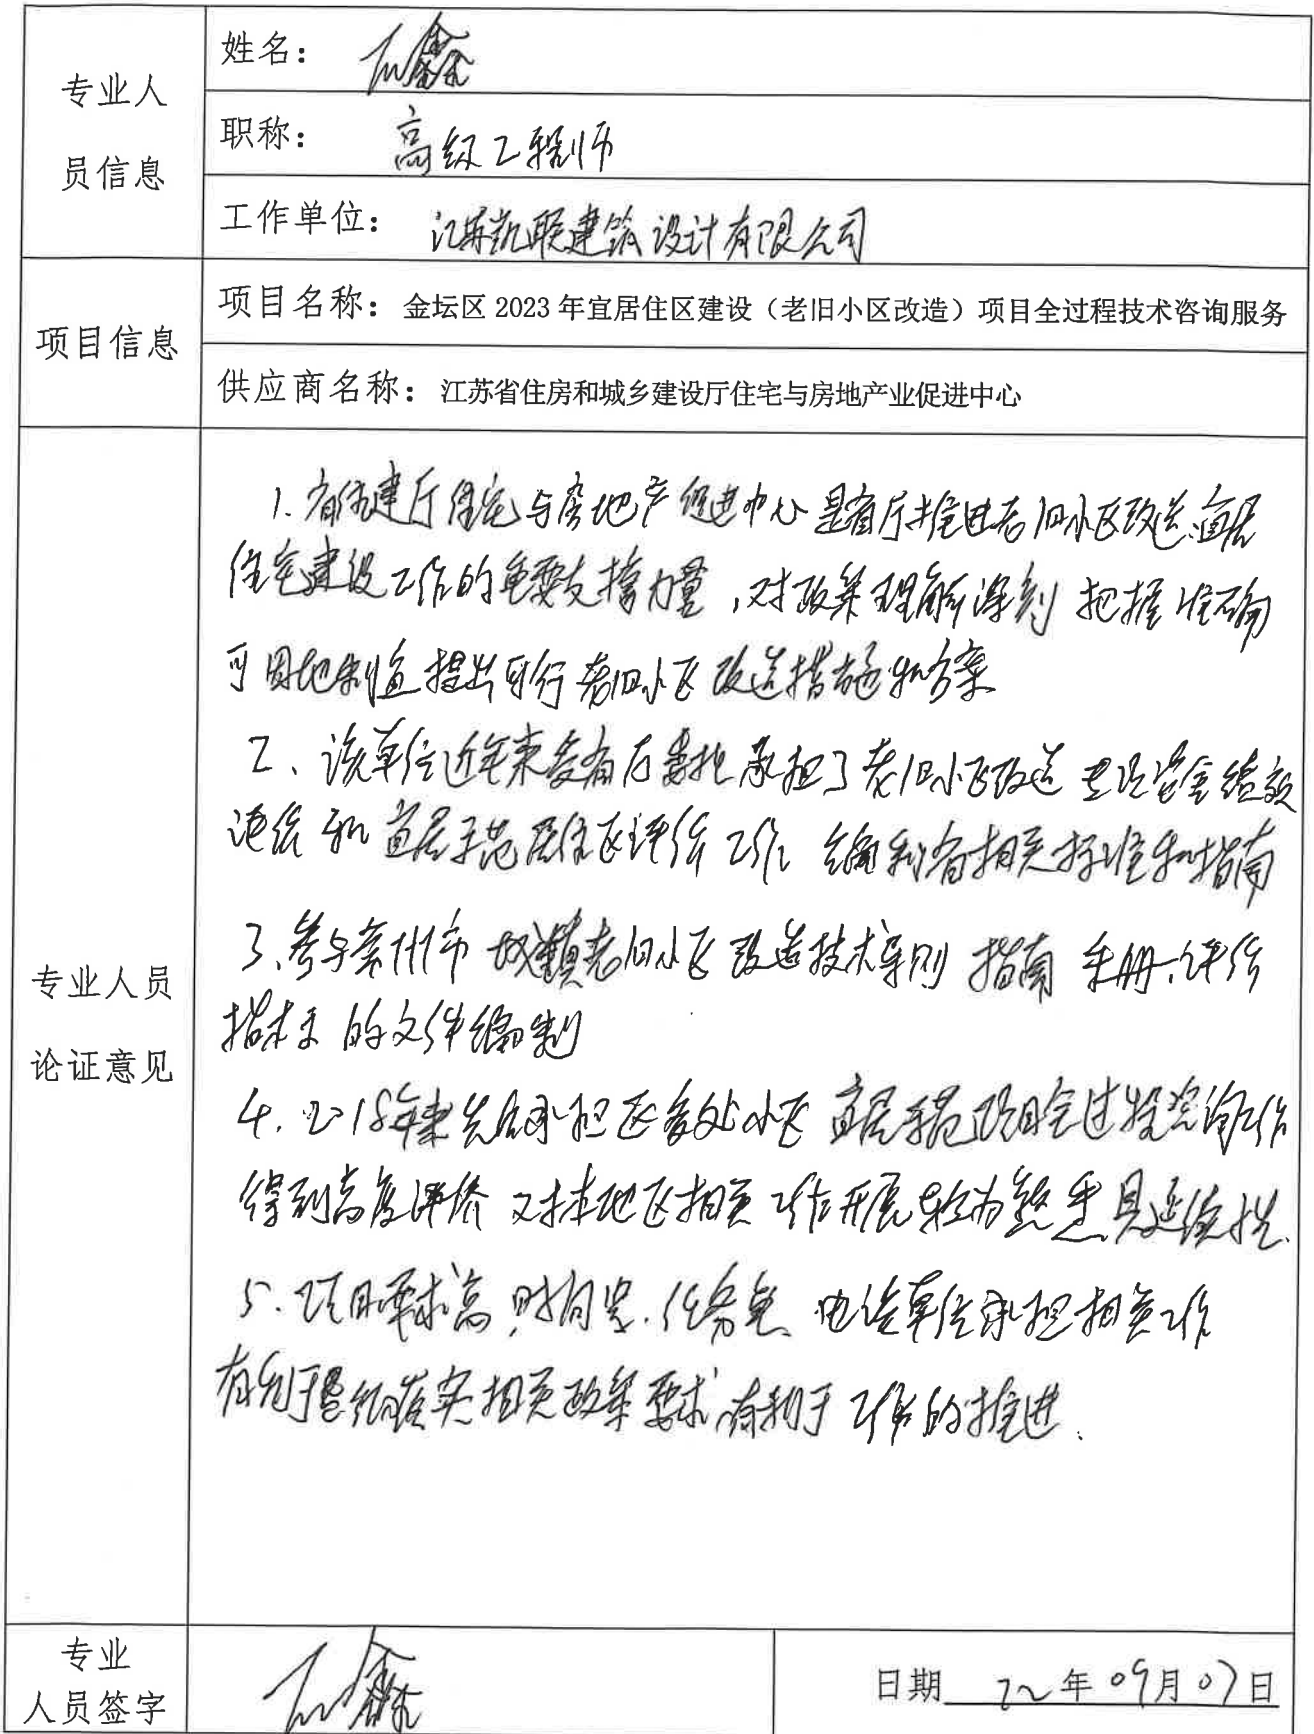 专业人员信息
姓名：鑫
职称：高级工程师
工作单位：江苏凯联建筑设计有限公司
项目信息
项目名称：金坛区 2023 年宜居住区建设（老旧小区改造）项目全过程技术咨询服务
供应商名称：江苏省住房和城乡建设厅住宅与房地产业促进中心
专业人员论证意见
1. 省住建厅住宅与房地产促进中心是省厅推进老旧小区改造、宜居
住宅建设工作的重要支撑力量，对政策理解深刻 把握准确
可因地制宜提出可行老旧小区改造措施和方案
2、该单位近年来受省厅委托承担了老旧小区改造专项资金绩效
评估和宜居示范居住区评价工作 编制省相关标准和指南
3、参与常州市城镇老旧小区改造技术导则 指南 手册、评价
指标 的文件编制
4. 18年来先后承担区多处小区宜居示范项目全过程咨询工作
得到高度评价 对本地区相关工作开展较为熟悉、具延续性.
5. 项目要求高，时间紧、任务重、由该单位承担相关工作
有利于落实相关政策要求，有利于工作的推进.
专业
人员签字
鑫
日期 22年09月07日